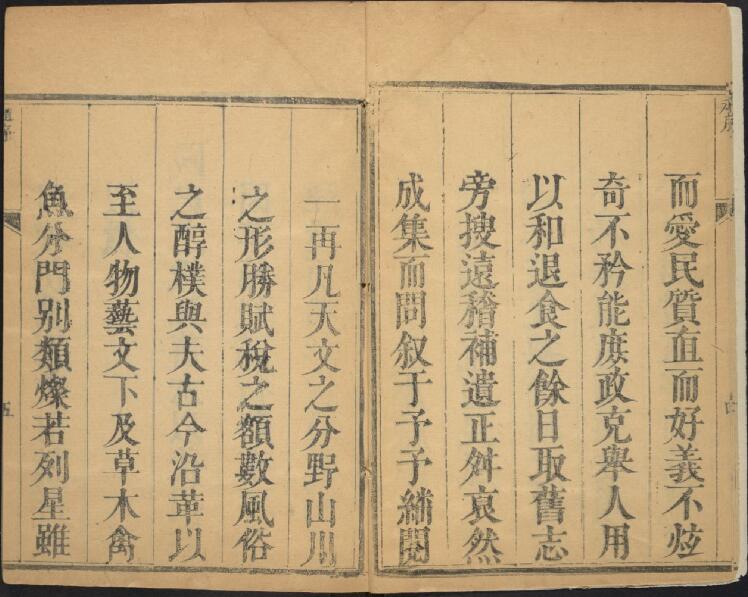 而愛民質直而好義不炫
奇不矜能庶政克舉人用
以和退食之餘日取舊志
旁搜遠稽補遺正舛裒然
成集而問叙于予予繙閱
一再凡天文之分野山川
之形勝賦稅之額數風俗
之醇樸與夫古今沿革以
至人物藝文下及草木禽
魚分門別類燦若列星雖
五